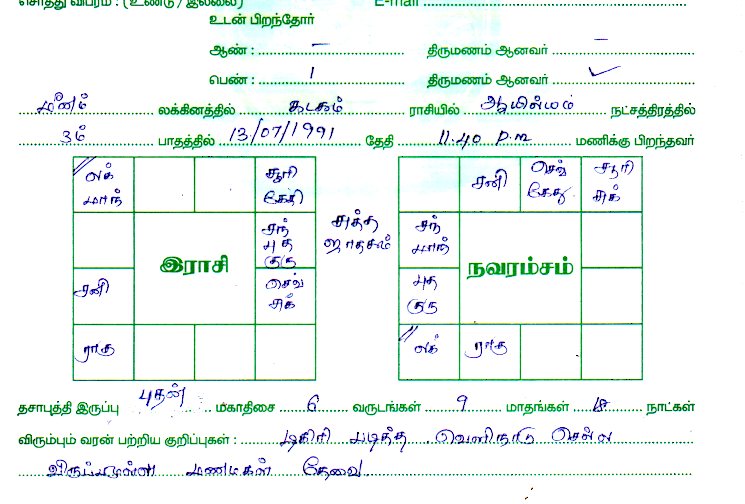 சொத்து விபரம் : (உண்டு / இல்லை) E-mail
உடன் பிறந்தோர்
ஆண் : – திருமணம் ஆனவர் –
பெண் : 1 திருமணம் ஆனவர் ✓
மீனம் லக்கினத்தில் கடகம் ராசியில் ஆயில்யம் நட்சத்திரத்தில்
3ம் பாதத்தில் 13/07/1991 தேதி 11.40 P.m மணிக்கு பிறந்தவர்
லக் மாந் சூரி கேது
சந் புத குரு
இராசி
சனி செவ் சுக்
ராகு
சுத்த ஜாதகம்
சனி செவ் கேது சூரி சுக்
சந் மாந்
நவரம்சம்
புத குரு
லக் ராகு
தசாபுத்தி இருப்பு புதன் மகாதிசை 6 வருடங்கள் 9 மாதங்கள் 18 நாட்கள்
விரும்பும் வரன் பற்றிய குறிப்புகள் : டிகிரி படித்த வெளிநாடு செல்ல
விருப்பமுள்ள மணமகன் தேவை